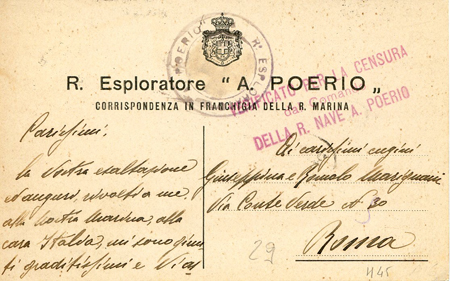 R. Esploratore "A. POERIO"
CORRISPONDENZA IN FRANCHIGIA DELLA R. MARINA
POERIO
R. ESPL
VERIFICATO PER LA CENSURA
dal Comando
DELLA R. NAVE A. POERIO
Carissimi,
la vostra esaltazione
d'auguri, rivolti a me,
alla nostra Marina, alla
cara Italia, mi sono giun
ti graditissimi e
Ai carissimi cugini
Giuseppina e Romolo
Via Conte Verde N 30
Roma
29